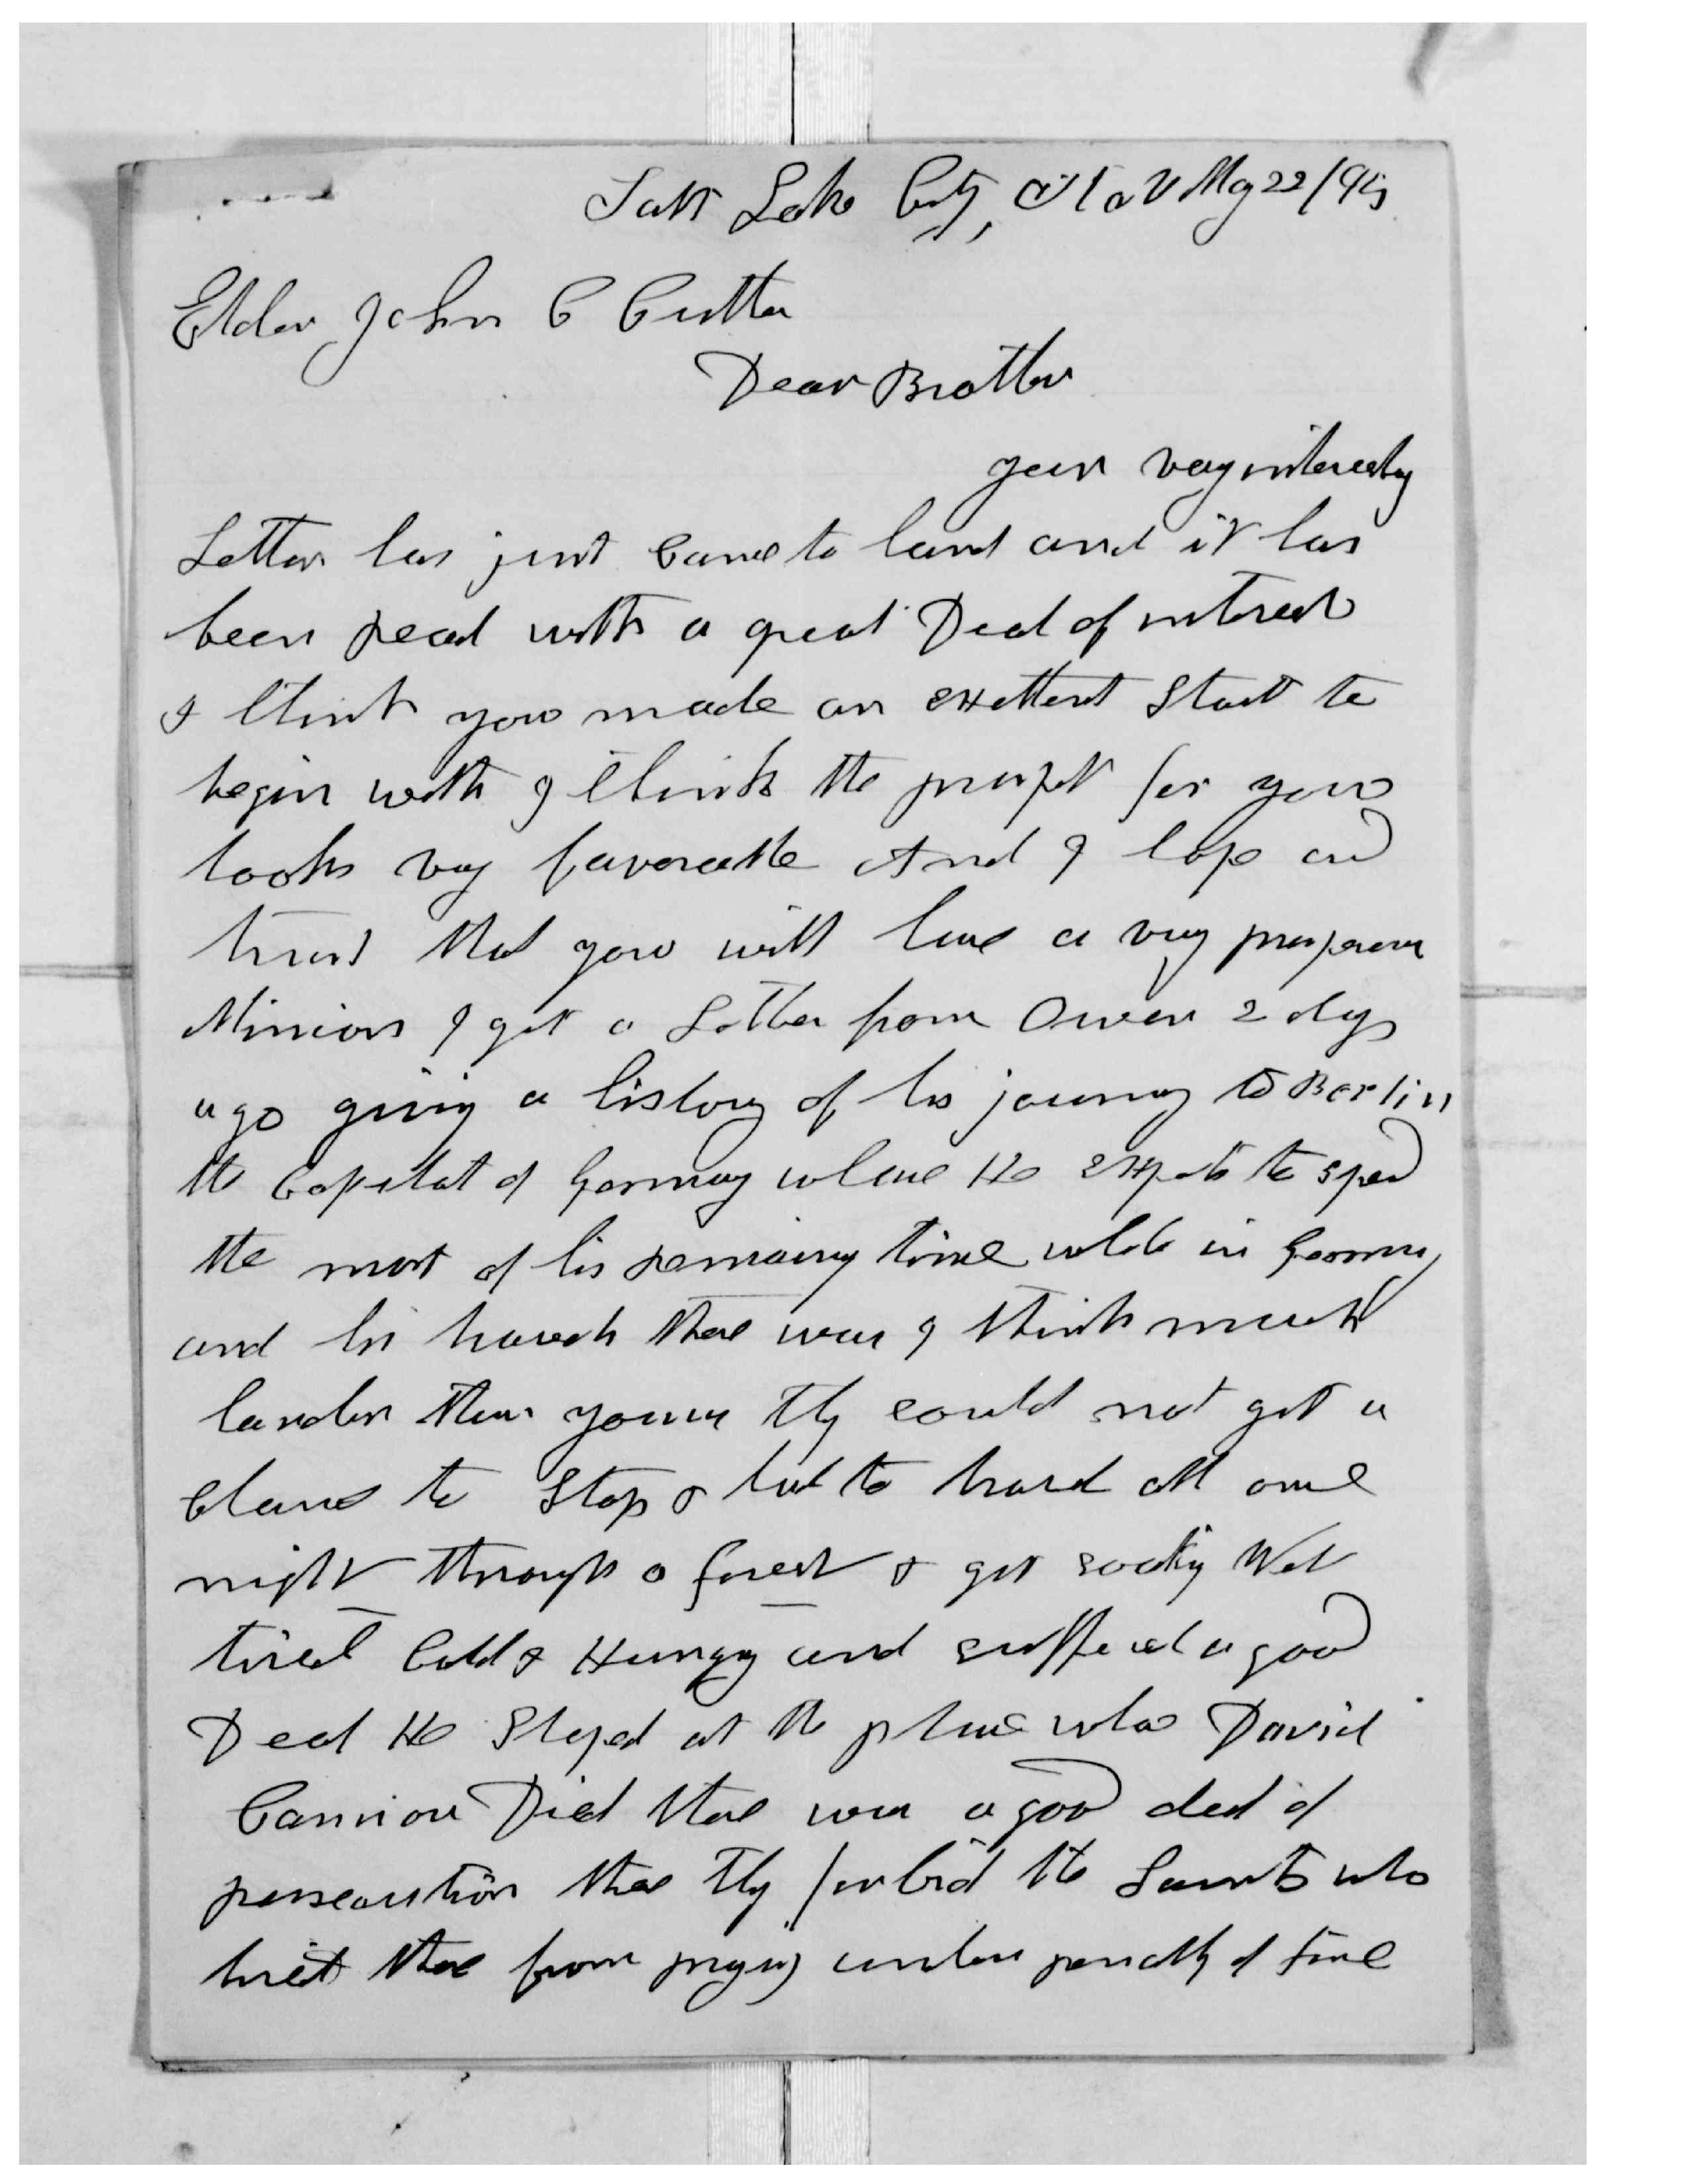 Salt Lake City, Utah May 22/95
Elder John C Cutler
Dear Brother
your very interestig
Letter has just came to hand and it has
been read with a great Deal of interest
I think you made an Exellent Start to
begin with I think the prospet for you
looks very favorable And I hope and
trust that you will have a very prosperous
Mission I got a Letter from Owen 2 days
ago giving a history of his journey to Berlin
the Capital of Germany whare He Expets to spend
the most of his remaining time while in Germany
and his travels thare was I think much
harder than yours they could not get a
chance to Stop & had to travel all one
night through a forest & got soaking Wet
tired Cold & Hungry and suffered a good
Deal He Stoped at the place whare David
Cannon Died thare was a good deal of
persecution thare They forbid the Saints who
lived thare from praying under penalty of fine